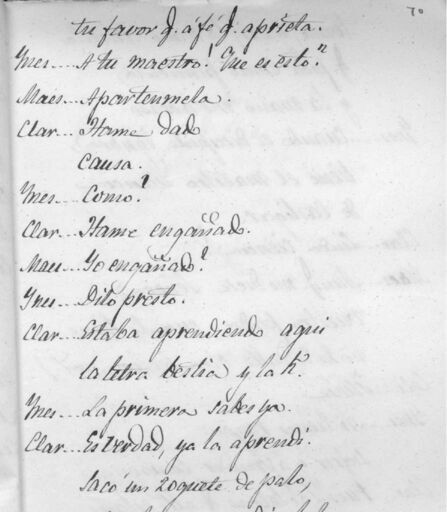 70
tu favor q. á fé q. aprieta.
Ynes.... A tu maestro! Que es esto?
Maes.. Apartenmela.
Clar... Hame dad
causa.
Ynes.. Como?
Clar... Hame engañad.
Maes.. Yo engañad?
Ynes... Dilo presto.
Clar... Estaba aprendiendo aqui
la letra bestia y la h.
Ynes... La primera sabes ya.
Clar... Es verdad, ya la aprendi.
Sacó un zoquete de palo,